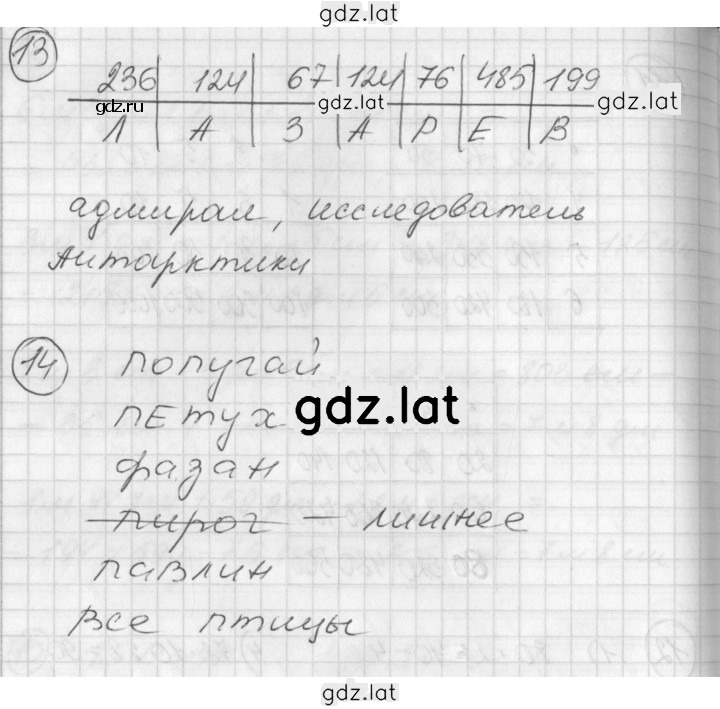 gdz.lat
13
236 124 67 124 76 485 199
gdz.ru gdz.lat gdz.lat
Л А З А Р Е В
адмирал, исследователь
Антарктики
14 попугай
gdz.lat
петух
фазан
пирог - лишнее
павлин
все птицы
gdz.lat